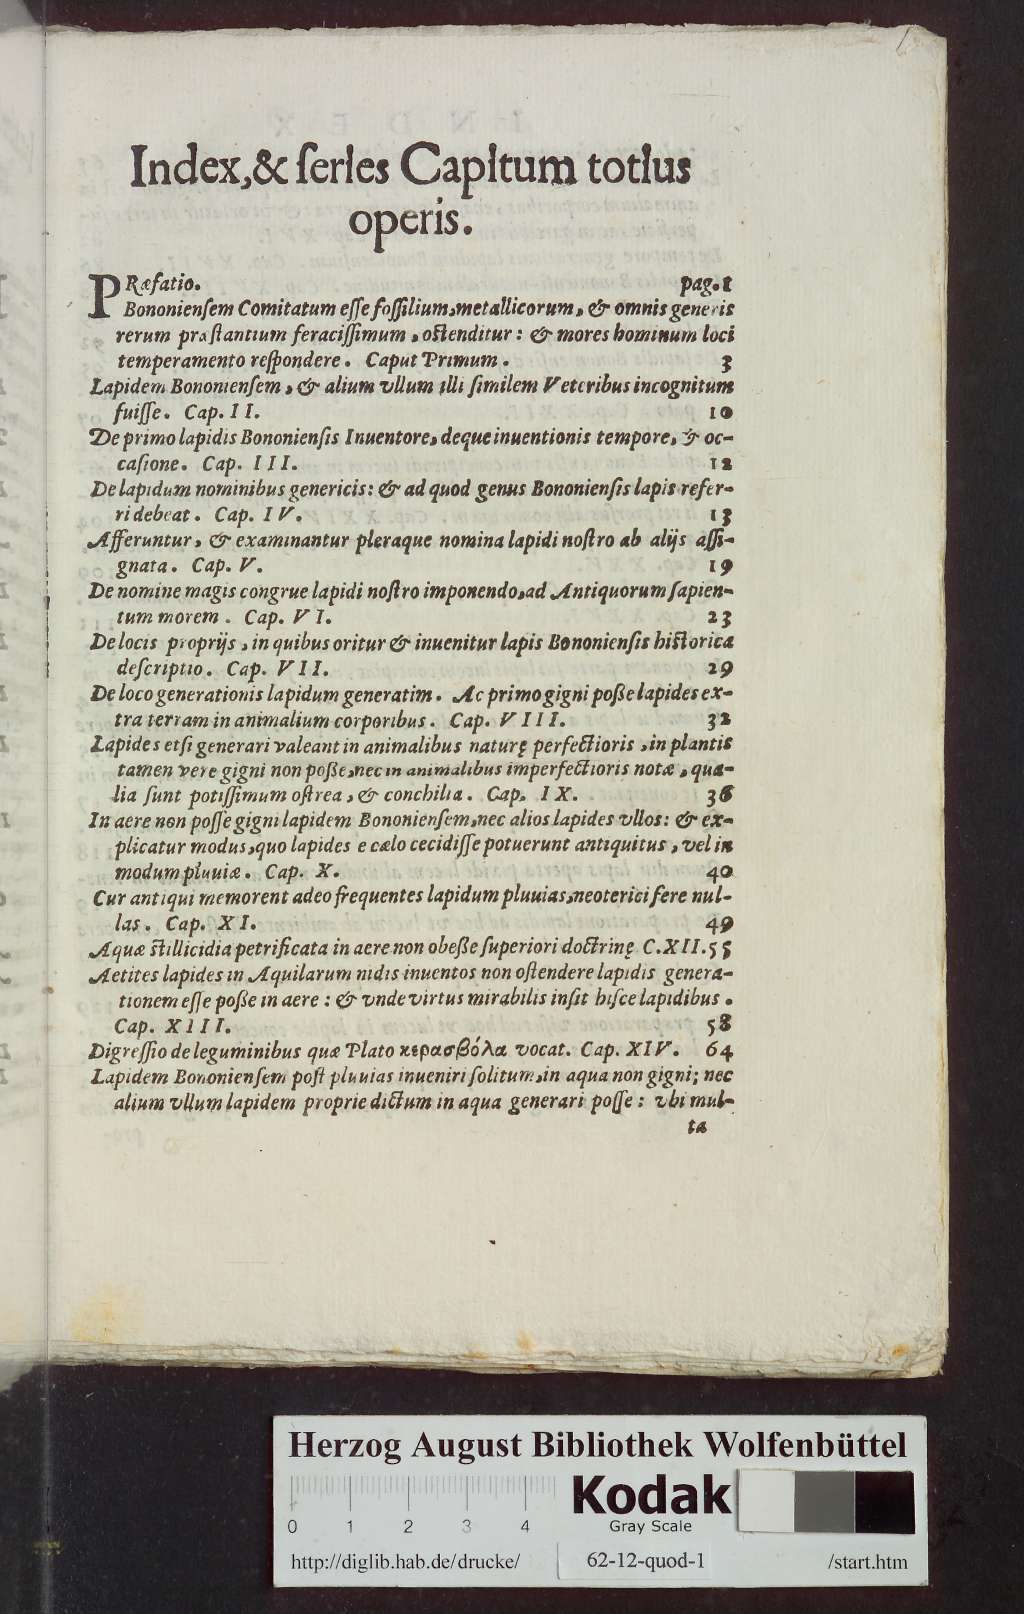 Index, & ſeries Capitum totius
operis.
PRæfatio. pag. 1
Bononienſem Comitatum eſſe foſſilium, metallicorum, & omnis generis
rerum præſtantium feraciſſimum, oſtenditur: & mores hominum loci
temperamento reſpondere. Caput Primum. 3
Lapidem Bononienſem, & alium vllum illi ſimilem Veteribus incognitum
fuiſſe. Cap. II. 10
De primo lapidis Bononienſis Inuentore, deque inuentionis tempore, & oc-
caſione. Cap. III. 12
De lapidum nominibus genericis: & ad quod genus Bononienſis lapis refer-
ri debeat. Cap. IV. 13
Afferuntur, & examinantur pleraque nomina lapidi noſtro ab alijs aſſi-
gnata. Cap. V. 19
De nomine magis congrue lapidi noſtro imponendo, ad Antiquorum ſapien-
tum morem. Cap. VI. 23
De locis proprijs, in quibus oritur & inuenitur lapis Bononienſis hiſtorica
deſcriptio. Cap. VII. 29
De loco generationis lapidum generatim. Ac primo gigni poße lapides ex-
tra terram in animalium corporibus. Cap. VIII. 32
Lapides etſi generari valeant in animalibus naturę perfectioris, in plantis
tamen vere gigni non poße, nec in animalibus imperfectioris notæ, qua-
lia ſunt potiſſimum oſtrea, & conchilia. Cap. IX. 36
In aere non poſſe gigni lapidem Bononienſem, nec alios lapides vllos: & ex-
plicatur modus, quo lapides e cælo cecidiſſe potuerunt antiquitus, vel in
modum pluuiæ. Cap. X. 40
Cur antiqui memorent adeo frequentes lapidum pluuias, neoterici fere nul-
las. Cap. XI. 49
Aquæ ſtillicidia petrificata in aere non obeße ſuperiori doctrinę C. XII. 55
Aetites lapides in Aquilarum nidis inuentos non oſtendere lapidis genera-
tionem eſſe poße in aere: & vnde virtus mirabilis inſit hiſce lapidibus.
Cap. XIII. 58
Digreſſio de leguminibus quæ Plato κερασβόλα vocat. Cap. XIV. 64
Lapidem Bononienſem poſt pluuias inueniri ſolitum, in aqua non gigni; nec
alium vllum lapidem proprie dictum in aqua generari poſſe: vbi mul-
ta
Herzog August Bibliothek Wolfenbüttel
0 1 2 3 4
Kodak
Gray Scale
http://diglib.hab.de/drucke/ 62-12-quod-1 /start.htm